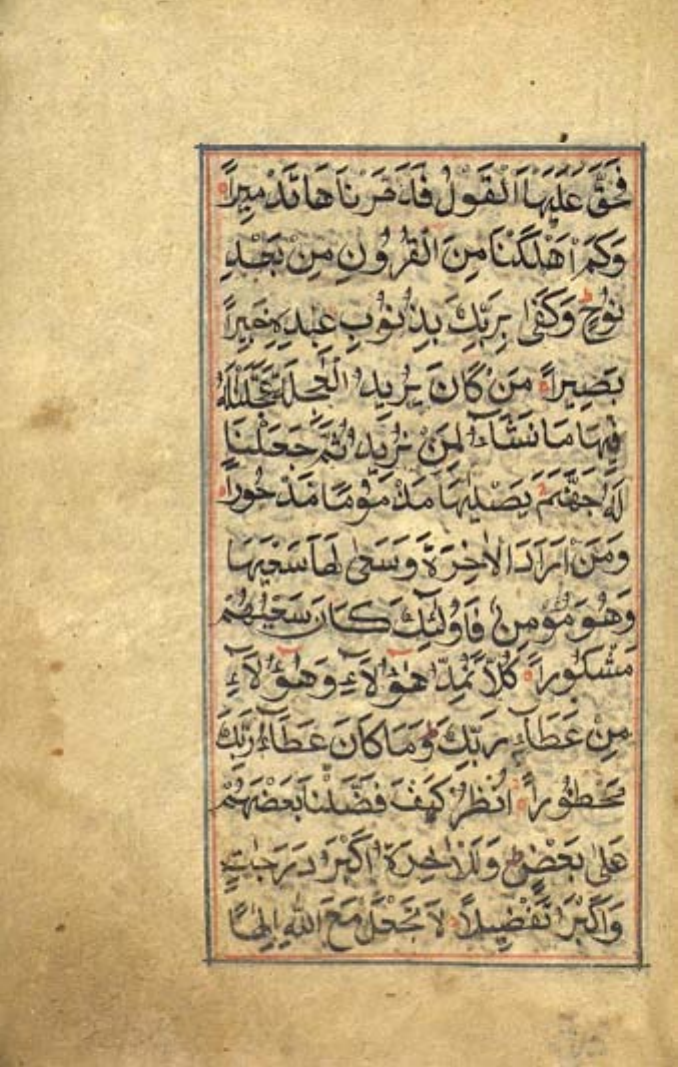 فَحَقَّ عَلَيْهَا الْقَوْلُ فَدَمَّرْنَاهَا تَدْمِيرًا
وَكَمْ أَهْلَكْنَا مِنَ الْقُرُونِ مِنْ بَعْدِ
نُوحٍ وَكَفَىٰ بِرَبِّكَ بِذُنُوبِ عِبَادِهِ خَبِيرًا
بَصِيرًا مَنْ كَانَ يُرِيدُ الْعَاجِلَةَ عَجَّلْنَا لَهُ
فِيهَا مَا نَشَآءُ لِمَنْ نُرِيدُ ثُمَّ جَعَلْنَا
لَهُ جَهَنَّمَ يَصْلٰيهَا مَذْمُومًا مَدْحُورًا
وَمَنْ اَرَادَ الْاٰخِرَةَ وَسَعٰى لَهَا سَعْيَهَا
وَهُوَ مُؤْمِنٌ فَاُولٰٓئِكَ كَانَ سَعْيُهُمْ
مَشْكُورًا كُلًّا نُمِدُّ هٰٓؤُلَآءِ وَهٰٓؤُلَآءِ
مِنْ عَطَآءِ رَبِّكَ وَمَا كَانَ عَطَآءُ رَبِّكَ
مَحْظُورًا اُنْظُرْ كَيْفَ فَضَّلْنَا بَعْضَهُمْ
عَلٰى بَعْضٍ وَلَلْاٰخِرَةُ اَكْبَرُ دَرَجٰتٍ
وَاَكْبَرُ تَفْضِيلًا لَا تَجْعَلْ مَعَ اللّٰهِ اِلٰهًا